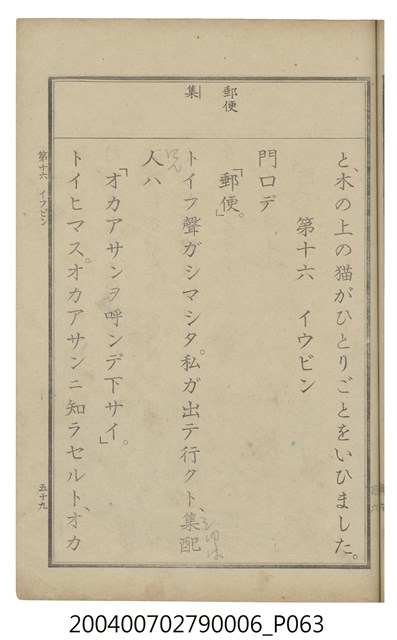 郵便
集
と、木の上の猫がひとりごとをいひました。
第十六　イウビン
門口デ
「郵便。」
トイフ聲ガシマシタ。私ガ出テ行クト、集配
人ハ
「オカアサンヲ呼ンデ下サイ。」
トイヒマス。オカアサンニ知ラセルト、オカ
第十六　イウビン
五十九
200400702790006_P063